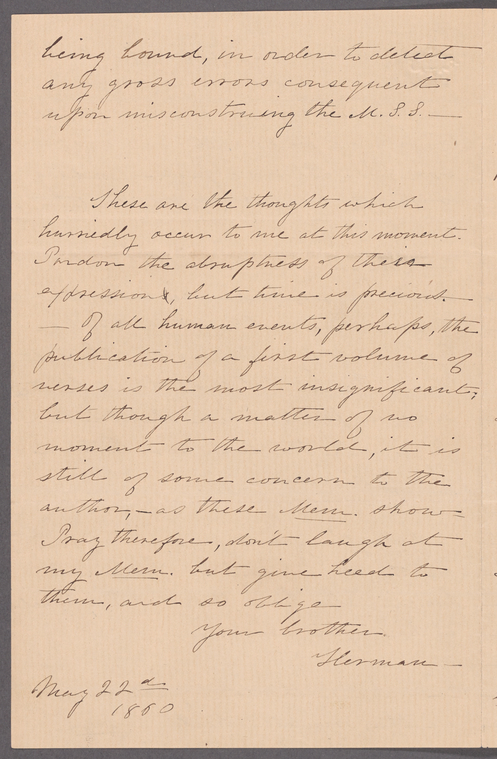 being bound, in order to detect
any gross errors consequent
upon misconstruing the M.S.S. —
These are the thoughts which
hurriedly occur to me at this moment.
Pardon the abruptness of their
expression, but time is precious. —
— Of all human events, perhaps, the
publication of a first volume of
verses is the most insignificant;
but though a matter of no
moment to the world, it is
still of some concern to the
author, — as these Mem. show —
Pray therefore, don't laugh at
my Mem. but give heed to
them, and so oblige
Your brother.
Herman —
May 22d
1860